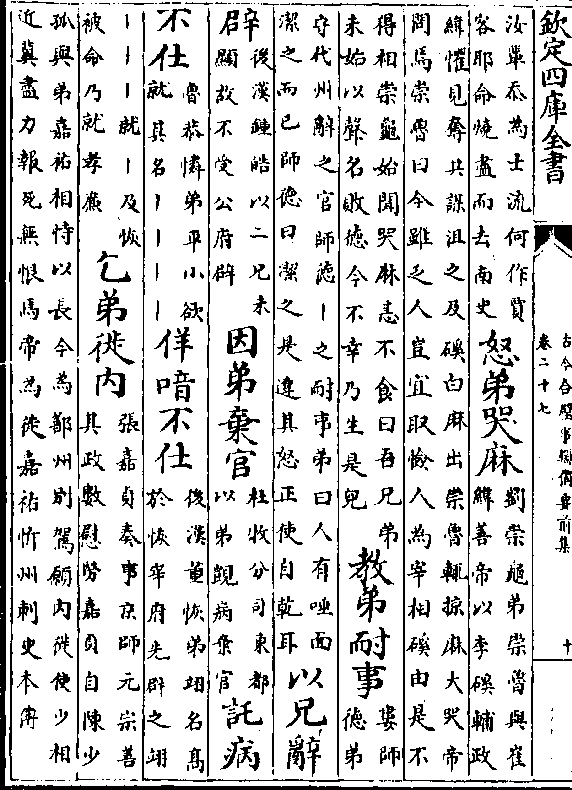 欽定四庫全書
古今合璧事類備要前集
卷二十七
十
汝輩忝為士流何作賈
客耶命燒盡而去南史
怒弟哭麻
劉崇龜弟崇魯與崔
緯善帝以李磎輔政
緯懼見奪共謀沮之及磎白麻出崇魯輒掠麻大哭帝
問焉崇魯曰今雖乏人豈宜取憸人為宰相磎由是不
得相崇龜始聞哭麻恚不食曰吾兄弟
未始以聲名敗德今不幸乃生是兒
教弟耐事
婁師
德弟
守代州辭之官師德丨之耐事弟曰人有唾面
潔之而已師德曰潔之是違其怒正使自乾耳
以兄辭
辟
後漢鍾皓以二兄未
顯故不受公府辟
因弟棄官
杜牧分司東都
以弟顗病棄官
託病
不仕
魯恭憐弟丕小欲
就其名丨丨丨丨
佯喑不仕
後漢董恢弟翊名高
於恢宰府先辟之翊
丨丨丨就丨及恢
被命乃就孝廉
乞弟徙內
張嘉貞奏事京師元宗善
其政數慰勞嘉貞自陳少
孤與弟嘉祐相恃以長今為鄯州別駕願內徙使少相
近冀盡力報死無恨焉帝為徙嘉祐忻州刺史本傳